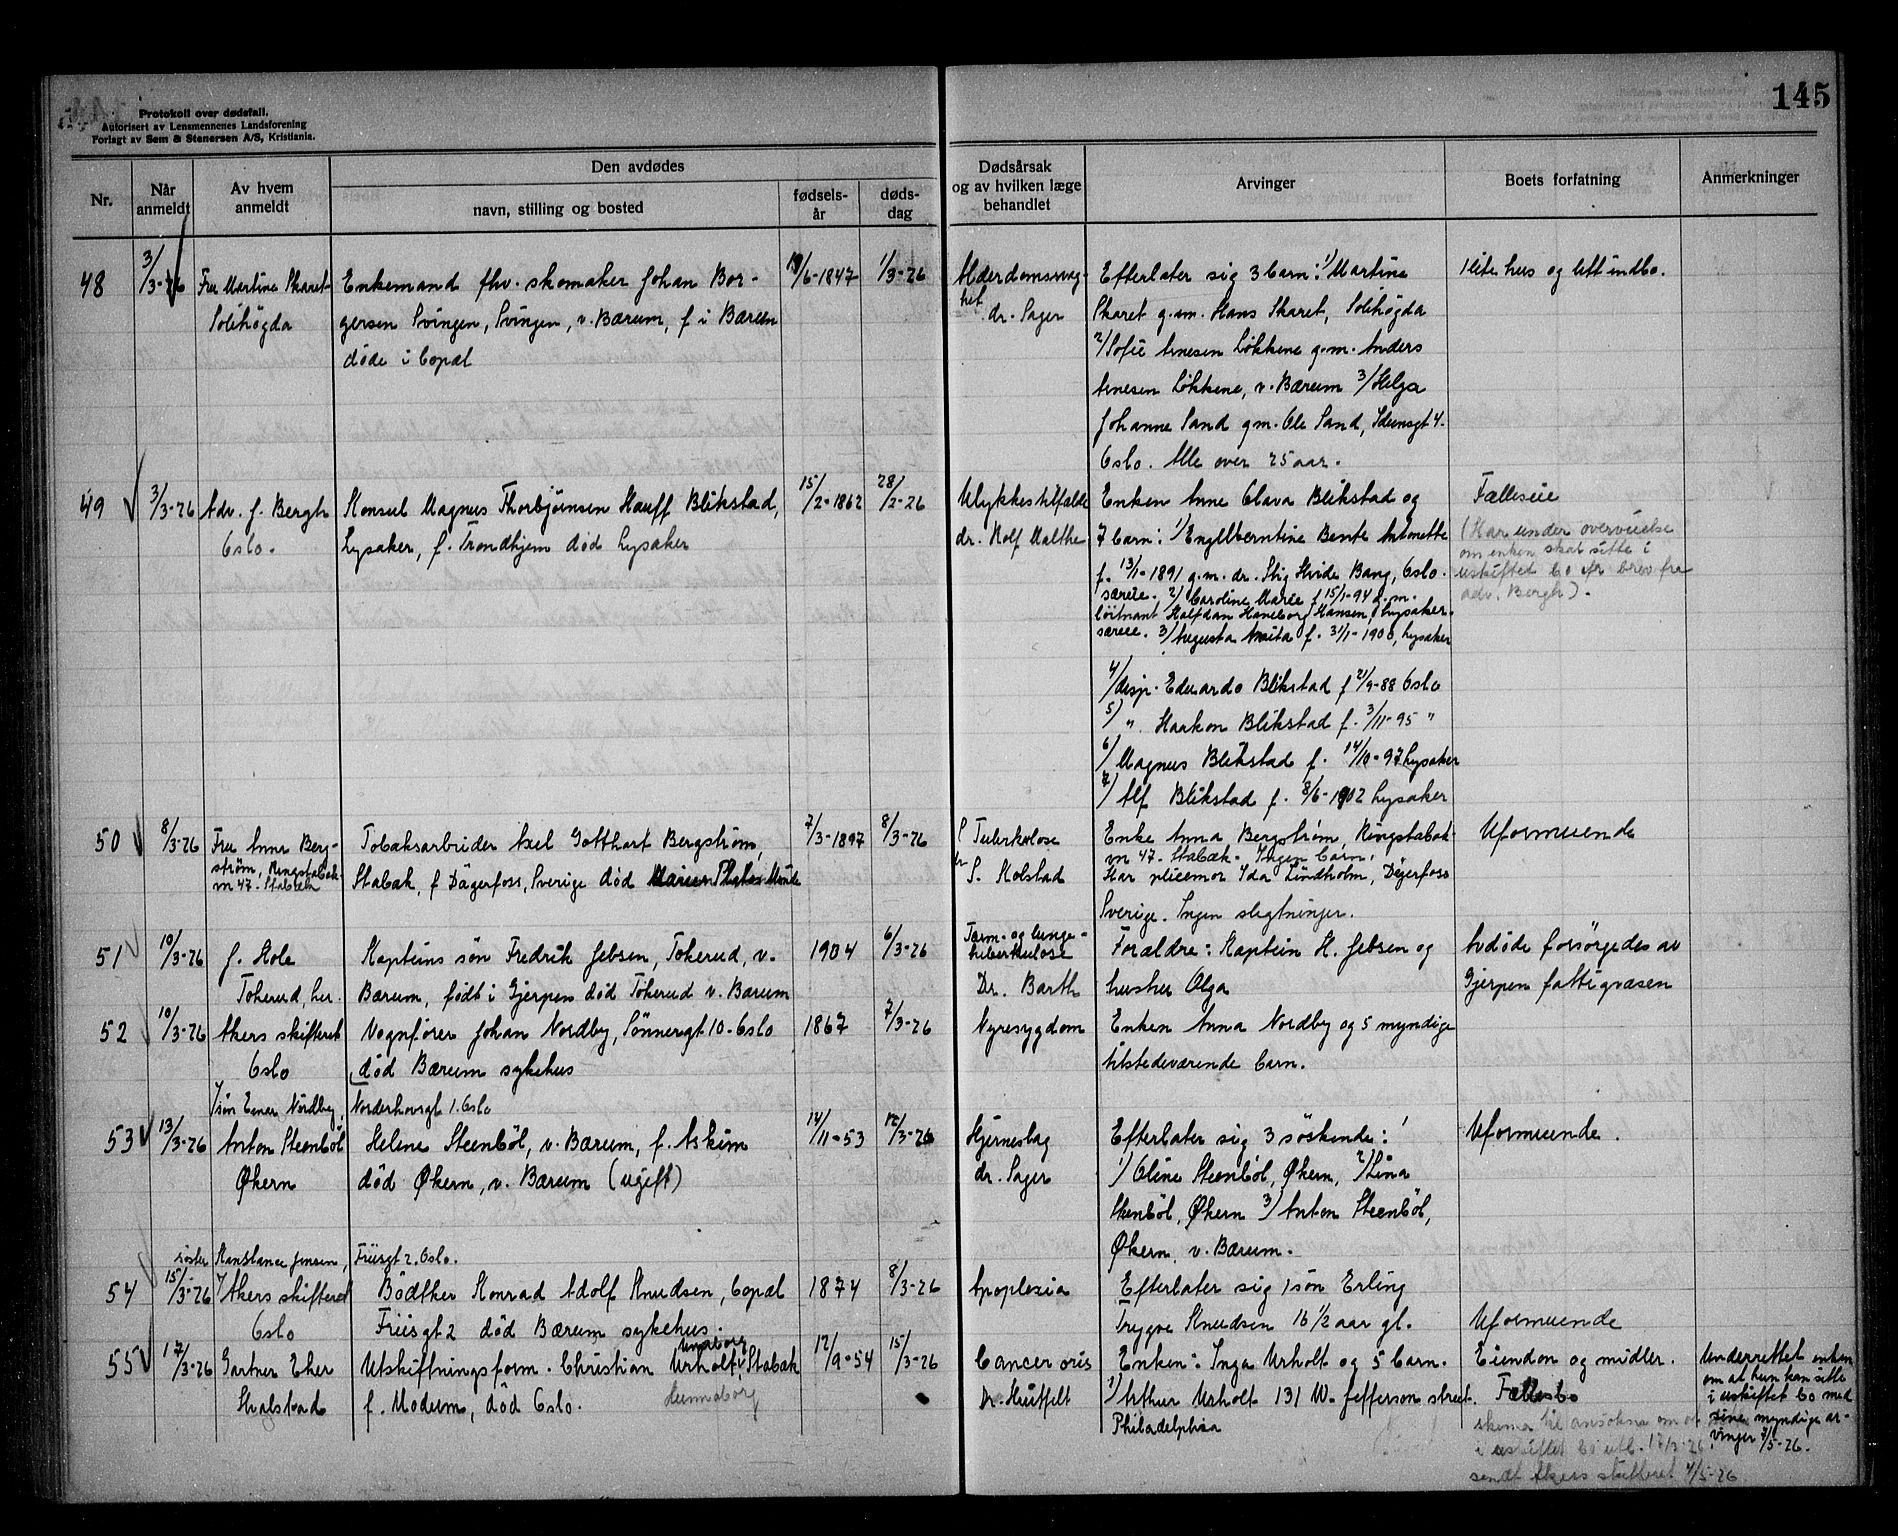 145
Protokoll over dødsfall.
Autorisert av Lensmennenes Landsforening
Forlagt av Sem & Stenersen A/S, Kristiania.
Nr.
Når anmeldt
Av hvem anmeldt
Den avdødes
navn, stilling og bosted
fødsels-år
døds-dag
Dødsårsak og av hvilken læge behandlet
Arvinger
Boets forfatning
Anmerkninger
48
3/3-26
Fru Martine Skaret
Solihøgda
Enkemand fhv. skomaker Johan Bor-
gersen Svingen, Svingen, v. Bærum, f i Bærum
døde i Copal
/6-1847
1/3-26
Alderdomssvag-
het
dr. Sager
Efterlater sig 3 barn: 1/ Martine
Skaret g.m. Hans Skaret, Solihøgda
2/ Sofie Arnesen Løkkene g.m. Anders
Arnesen Løkkene, v. Bærum 3/ Helga
Johanne Sand g.m. Ole Sand, 4.
Oslo. Alle over 25 aar.
1 lite hus og litt indbo.
49
3/3-26
Adv. J. Bergh
Oslo.
Konsul Magnus Thorbjørnsen Hauff Blikstad,
Lysaker, f. Trondhjem død Lysaker
15/2-1862
28/2-26
Ulykkestilfælde
dr. Rolf Malthe
Enken Anne Olava Blikstad og
7 barn: 1/ Engelberntine Bente Antonette
f. 13/1-1891 g.m. dr. Stig Hvide Bang, Oslo.
særeie. 2/ Caroline Marie f 15/1-94 g.m.
løitnant Halfdan Haneborg Hansen, Lysaker.
særeie. 3/ Augusta Anita f. 31/1-1900, Lysaker
4/ disp. Eduardo Blikstad f 21/9-88 Oslo
5/ " Haakon Blikstad f. 3/11-95 "
6/ Magnus Blikstad f. 14/10-97 Lysaker
7/ Alf Blikstad f. 8/6-1902 Lysaker
Fælleseie
(Har under overveielse
om enken skal sitte i
uskifted bo efr brev fra
adv. Bergh).
50
8/3-26
Fru Anna Berg-
strøm, Ringstabæk-
vn 47. Stabæk
Tobaksarbeider Axel Gotthart Bergstrøm,
Stabæk, f Dägerfoss, Sverige død
7/3-1897
8/3-26
Tuberkulose
S. Kolstad
Enke Anna Bergstrøm, Ringstabæk-
vn 47. Stabæk. Ingen barn.
Har pleiemor Ida Lindholm, Degerfoss
Sverige. Ingen slegtninger.
Uformuende
51
10/3-26
J. Hole
Tokerud, her.
Kapteins søn Fredrik Jebsen, Tokerud, v.
Bærum, født i Gjerpen død Tokerud v. Bærum
1904
6/3-26
Tarm- og lunge-
tuberkulose
Dr. Barth
Forældre: Kaptein H. Jebsen og
hustru Olga
Avdøde forsørgedes av
Gjerpen fattigvæsen
52
10/3-26
Akers skifteret
Oslo
Vognfører Johan Nordby, Sønnergt 10-Oslo
død Bærum sykehus
1867
7/3-26
Nyresygdom
Enken Anna Nordby og 5 myndige
tilstedeværende barn.
søn Einar Nordby, Norderhovsgt 1. Oslo
53
13/3-26
Anton Steenbøl
Økern
Helene Steenbøl, v. Bærum, f. Askim
død Økern, v. Bærum (ugift)
14/11-53
12/3-26
Hjerneslag
dr. Sager
Efterlater sig 3 søskende:
1/ Oline Steenbøl, Økern, 2/ Lina
Steenbøl, Økern 3/ Anton Steenbøl,
Økern v. Bærum.
Uformuende.
søster Konstance Jensen, Friisgt 2. Oslo.
54
15/3-26
Akers skifteret
Oslo
Bødtker Konrad Adolf Knudsen, Copal
Friisgt 2 død Bærum sykehus.
1874
8/3-26
Apoplexia
Efterlater sig 1 søn Erling
Trygve Knudsen 16 1/2 aar gl.
Uformuende
55
17/3-26
Gartner Eker
Hvalstad
Utskiftningsform. Christian Urholt, Stabæk
f. Modum, død Oslo.
12/9-54
15/3-26
Cancer oris
Dr. Huitfelt
Enken: Inga Urholt og 5 barn.
1/ Arthur Urholt 131 W. Jefferson street.
Philadelphia
Eiendom og midler.
Fællesbo
skema til ansøkning om at
i uskiftet bo utl. 17/3-26.
sendt Akers skifteret 4/5-26
Underrettet enken
om at hun kan sitte
i uskiftet bo med
sine myndige ar-
vinger 7/5-26.